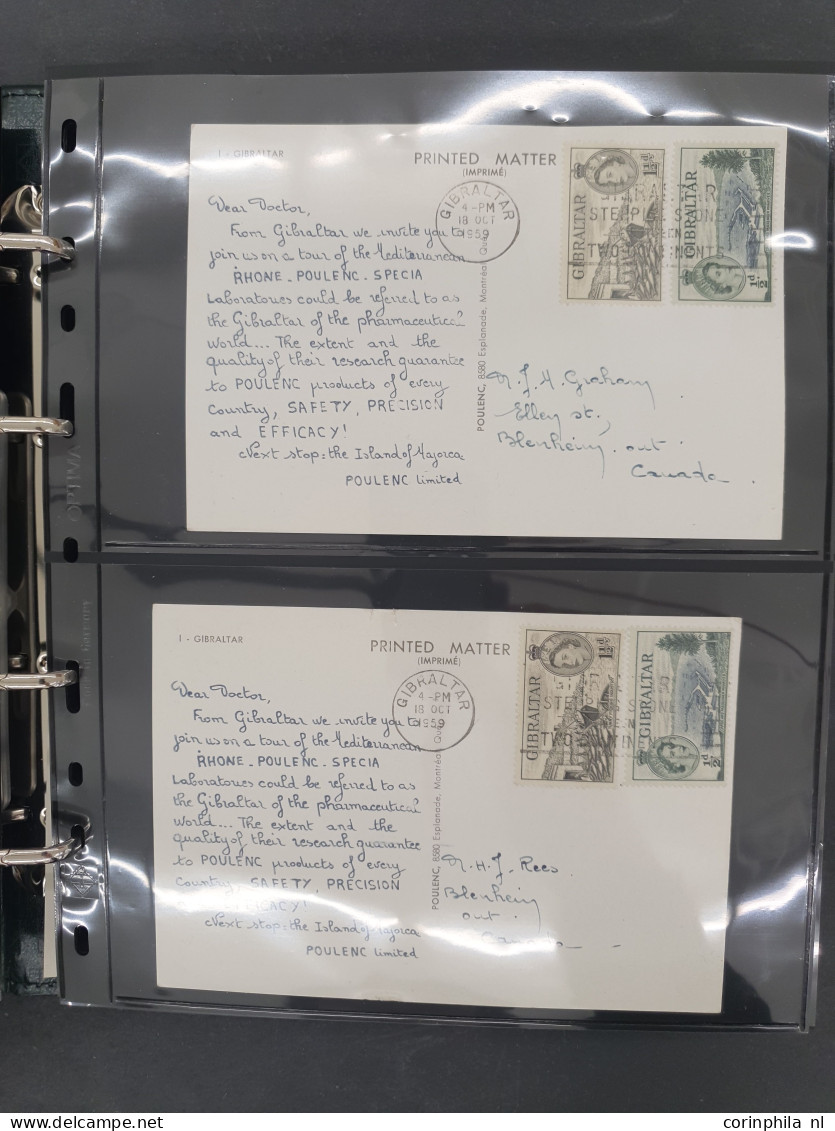 1 - GIBRALTAR
PRINTED MATTER
(IMPRIMÉ)
GIBRALTAR
4 - PM
18 OCT
1959
GIBRALTAR
1½d
GIBRALTAR
½d
Dear Doctor,
From Gibraltar we invite you to
join us on a tour of the Mediterranean
RHONE - POULENC - SPECIA
Laboratories could be referred to as
the Gibraltar of the pharmaceutical
world... The extent and the
quality of their research guarantee
to POULENC products of every
Country, SAFETY, PRECISION
and EFFICACY!
Next stop: the Island of Majorca
POULENC limited
POULENC, 8580 Esplanade, Montréal Qué
J. H. Graham
Elley st.,
Blenheim, ont.
Canada.
1 - GIBRALTAR
PRINTED MATTER
(IMPRIMÉ)
GIBRALTAR
4 - PM
18 OCT
1959
GIBRALTAR
1½d
GIBRALTAR
½d
Dear Doctor,
From Gibraltar we invite you to
join us on a tour of the Mediterranean
RHONE - POULENC - SPECIA
Laboratories could be referred to as
the Gibraltar of the pharmaceutical
world... The extent and the
quality of their research guarantee
to POULENC products of every
Country, SAFETY, PRECISION
EFFICACY!
Next stop: the Island of Majorca
POULENC limited
POULENC, 8580 Esplanade, Montréal Qué
H. J. Rees
Blenheim
ont.
Canada
www.corinphila.nl